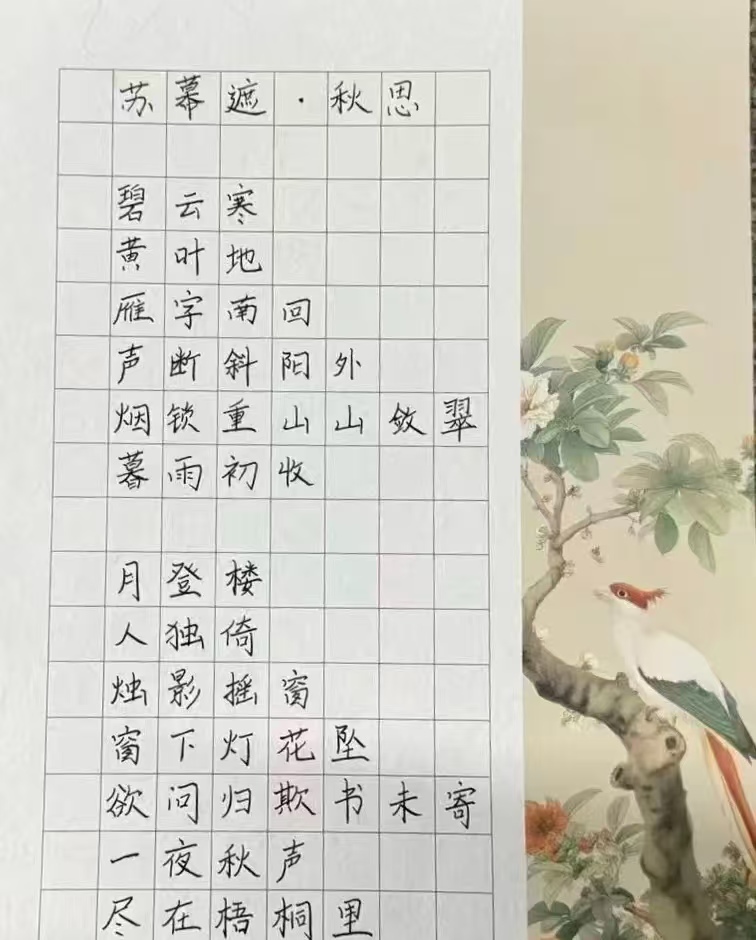 苏幕遮·秋思
碧云寒
黄叶地
雁字南回
声断斜阳外
烟锁重山山敛翠
暮雨初收
月登楼
人独倚
烛影摇窗
窗下灯花坠
欲问归欺书未寄
一夜秋声
尽在梧桐里